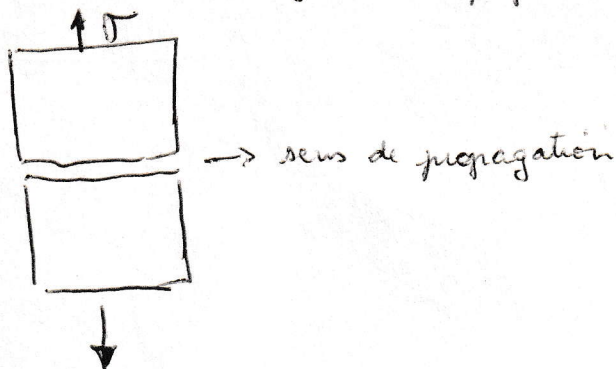 σ
→ sens de propagation